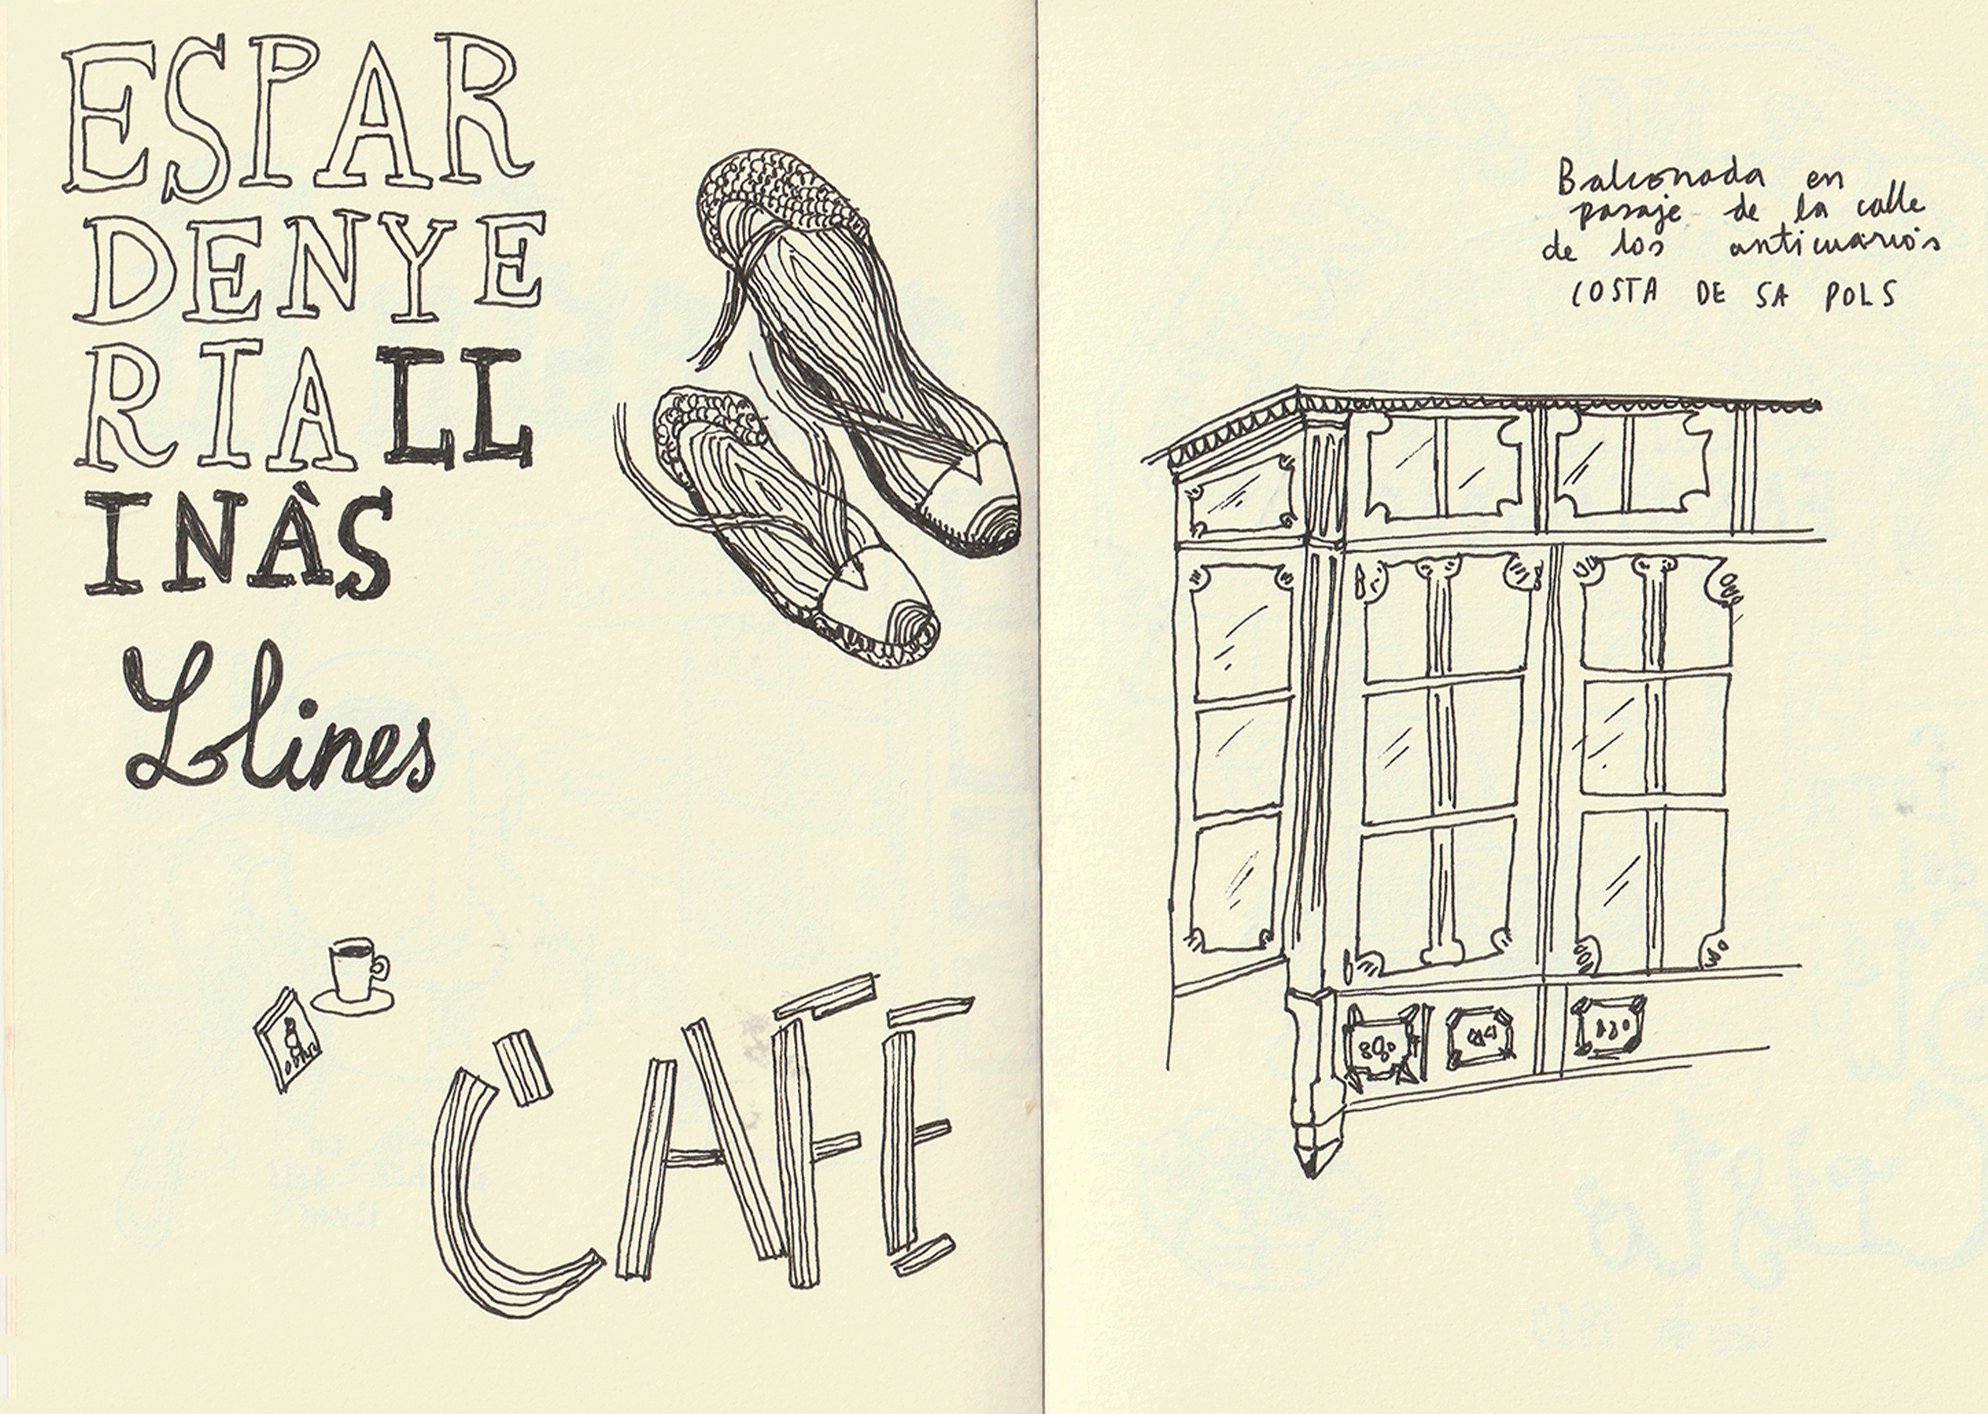 ESPAR
DENYE
RIALL
INÀS
Llines
CAFE
Balconada en
pasaje de la calle
de los anticuarios
COSTA DE SA POLS